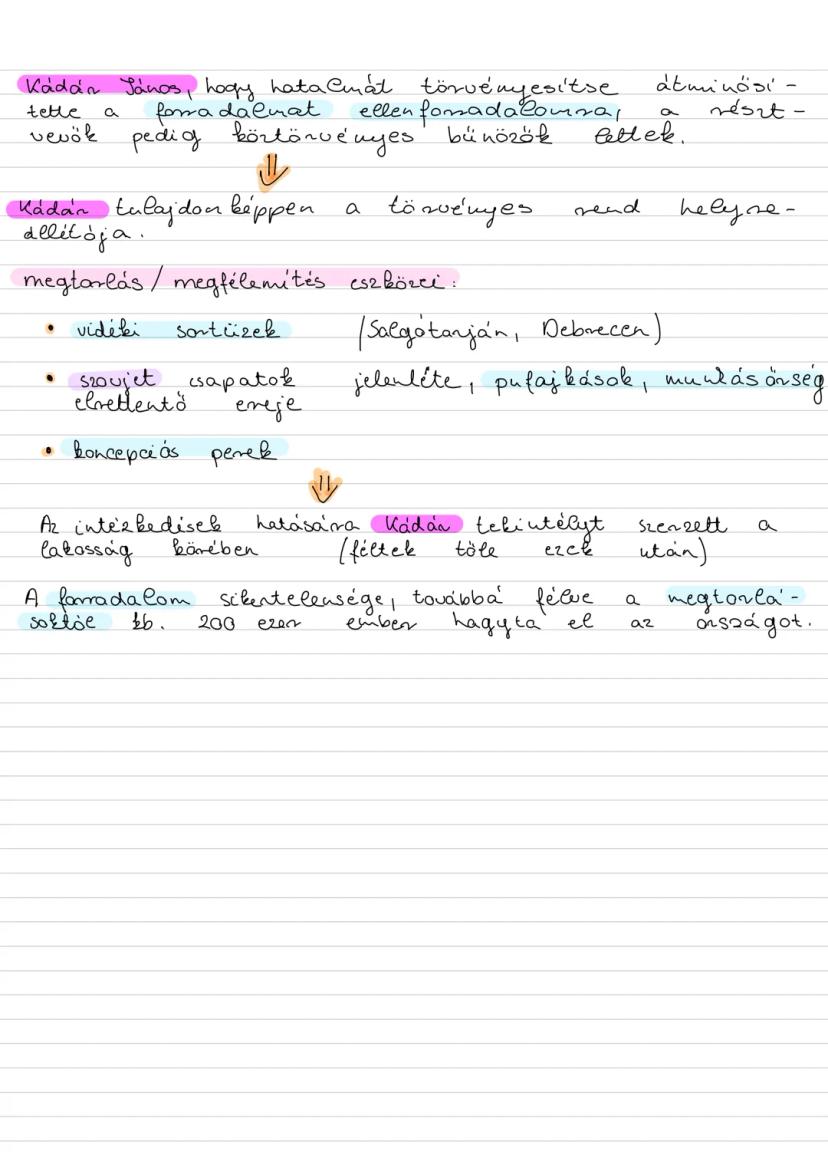 Kádár János, hogy hatalmát törvényesítse átminősí-
tette a forradalmat ellenforradalomra, a részt-
vevők pedig köztörvényes bűnözők lettek.
⇓
Kádár tulajdonképpen a törvényes rend helyre-
állítója.
megtorlás / megfélemítés eszközei:
• vidéki sortüzek (Salgótarján, Debrecen)
• szovjet csapatok jelenléte, pufajkások, munkásőrség
elrettentő ereje
• koncepciós perek
⇓
Az intézkedések hatására Kádár tekintélyt szerzett a
lakosság körében (féltek tőle ezek után)
A forradalom sikertelensége, továbbá félve a megtorlá-
soktól kb. 200 ezer ember hagyta el az országot.